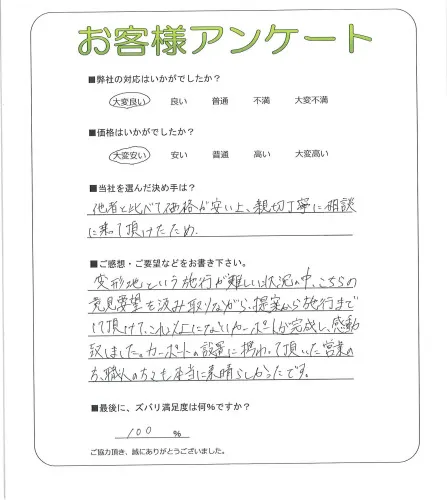 お客様アンケート
■弊社の対応はいかがでしたか?
大変良い 良い 普通 不満 大変不満
■価格はいかがでしたか?
大変安い 安い 普通 高い 大変高い
■当社を選んだ決め手は?
他者と比べて価格が安い上、親切丁寧に相談
に乗って頂けたため.
■ご感想・ご要望などをお書き下さい。
変形地という施行が難しい状況の中、こちらの
意見要望を汲み取りながら、提案から施行まで
して頂けて、これ以上にないカーポートが完成し、感動
致しました。カーポートの設置に携わって頂いた営業の
方、職人の方々も本当に素晴らしかったです。
■最後に、ズバリ満足度は何%ですか?
100 %
ご協力頂き、誠にありがとうございました。